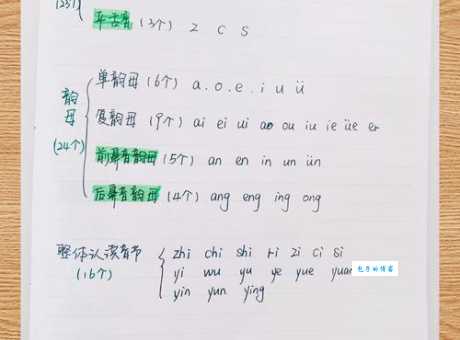 (23个)
平舌音 (3个) z c s
韵母 (24个)
单韵母 (6个) a. o. e. i u ü
复韵母 (9个) ai ei ui ao ou iu ie üe er
前鼻音韵母 (5个) an en in un ün
后鼻音韵母 (4个) ang eng ing ong
整体认读音节 (16个)
zhi chi shi ri zi ci si
yi wu yu ye yue yuan
yin yun ying